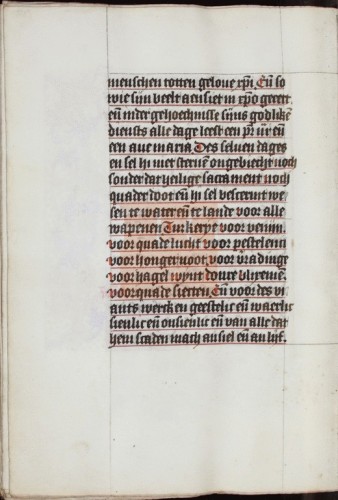 menschen totten gelove xp̃i. Eñ so
wie sijn beelt aensiet in xp̃o gecert
eñ inder gehoechnisse sijns godlikẽ
diensts alle dage leest een pr̃ nr̃ eñ
een ave maria. Des selven dages
en sel hi niet sterven ongebiecht noch
sonder dat heilige sacrament noch
quader doot eñ hi sel bescermt we-
sen te water eñ te lande voor alle
wapenen voor venim.
voor quade lucht voor pestelenci
voor hongernoot. voor ṽradinge
voor hagel wynt donre blixeme.
voor quade siecten. Eñ voor des vi
ants werckẽ en geestelic eñ waerlic
sienlic eñ onsienlic eñ van alle dat
hem scaden mach an siel eñ an lijf.